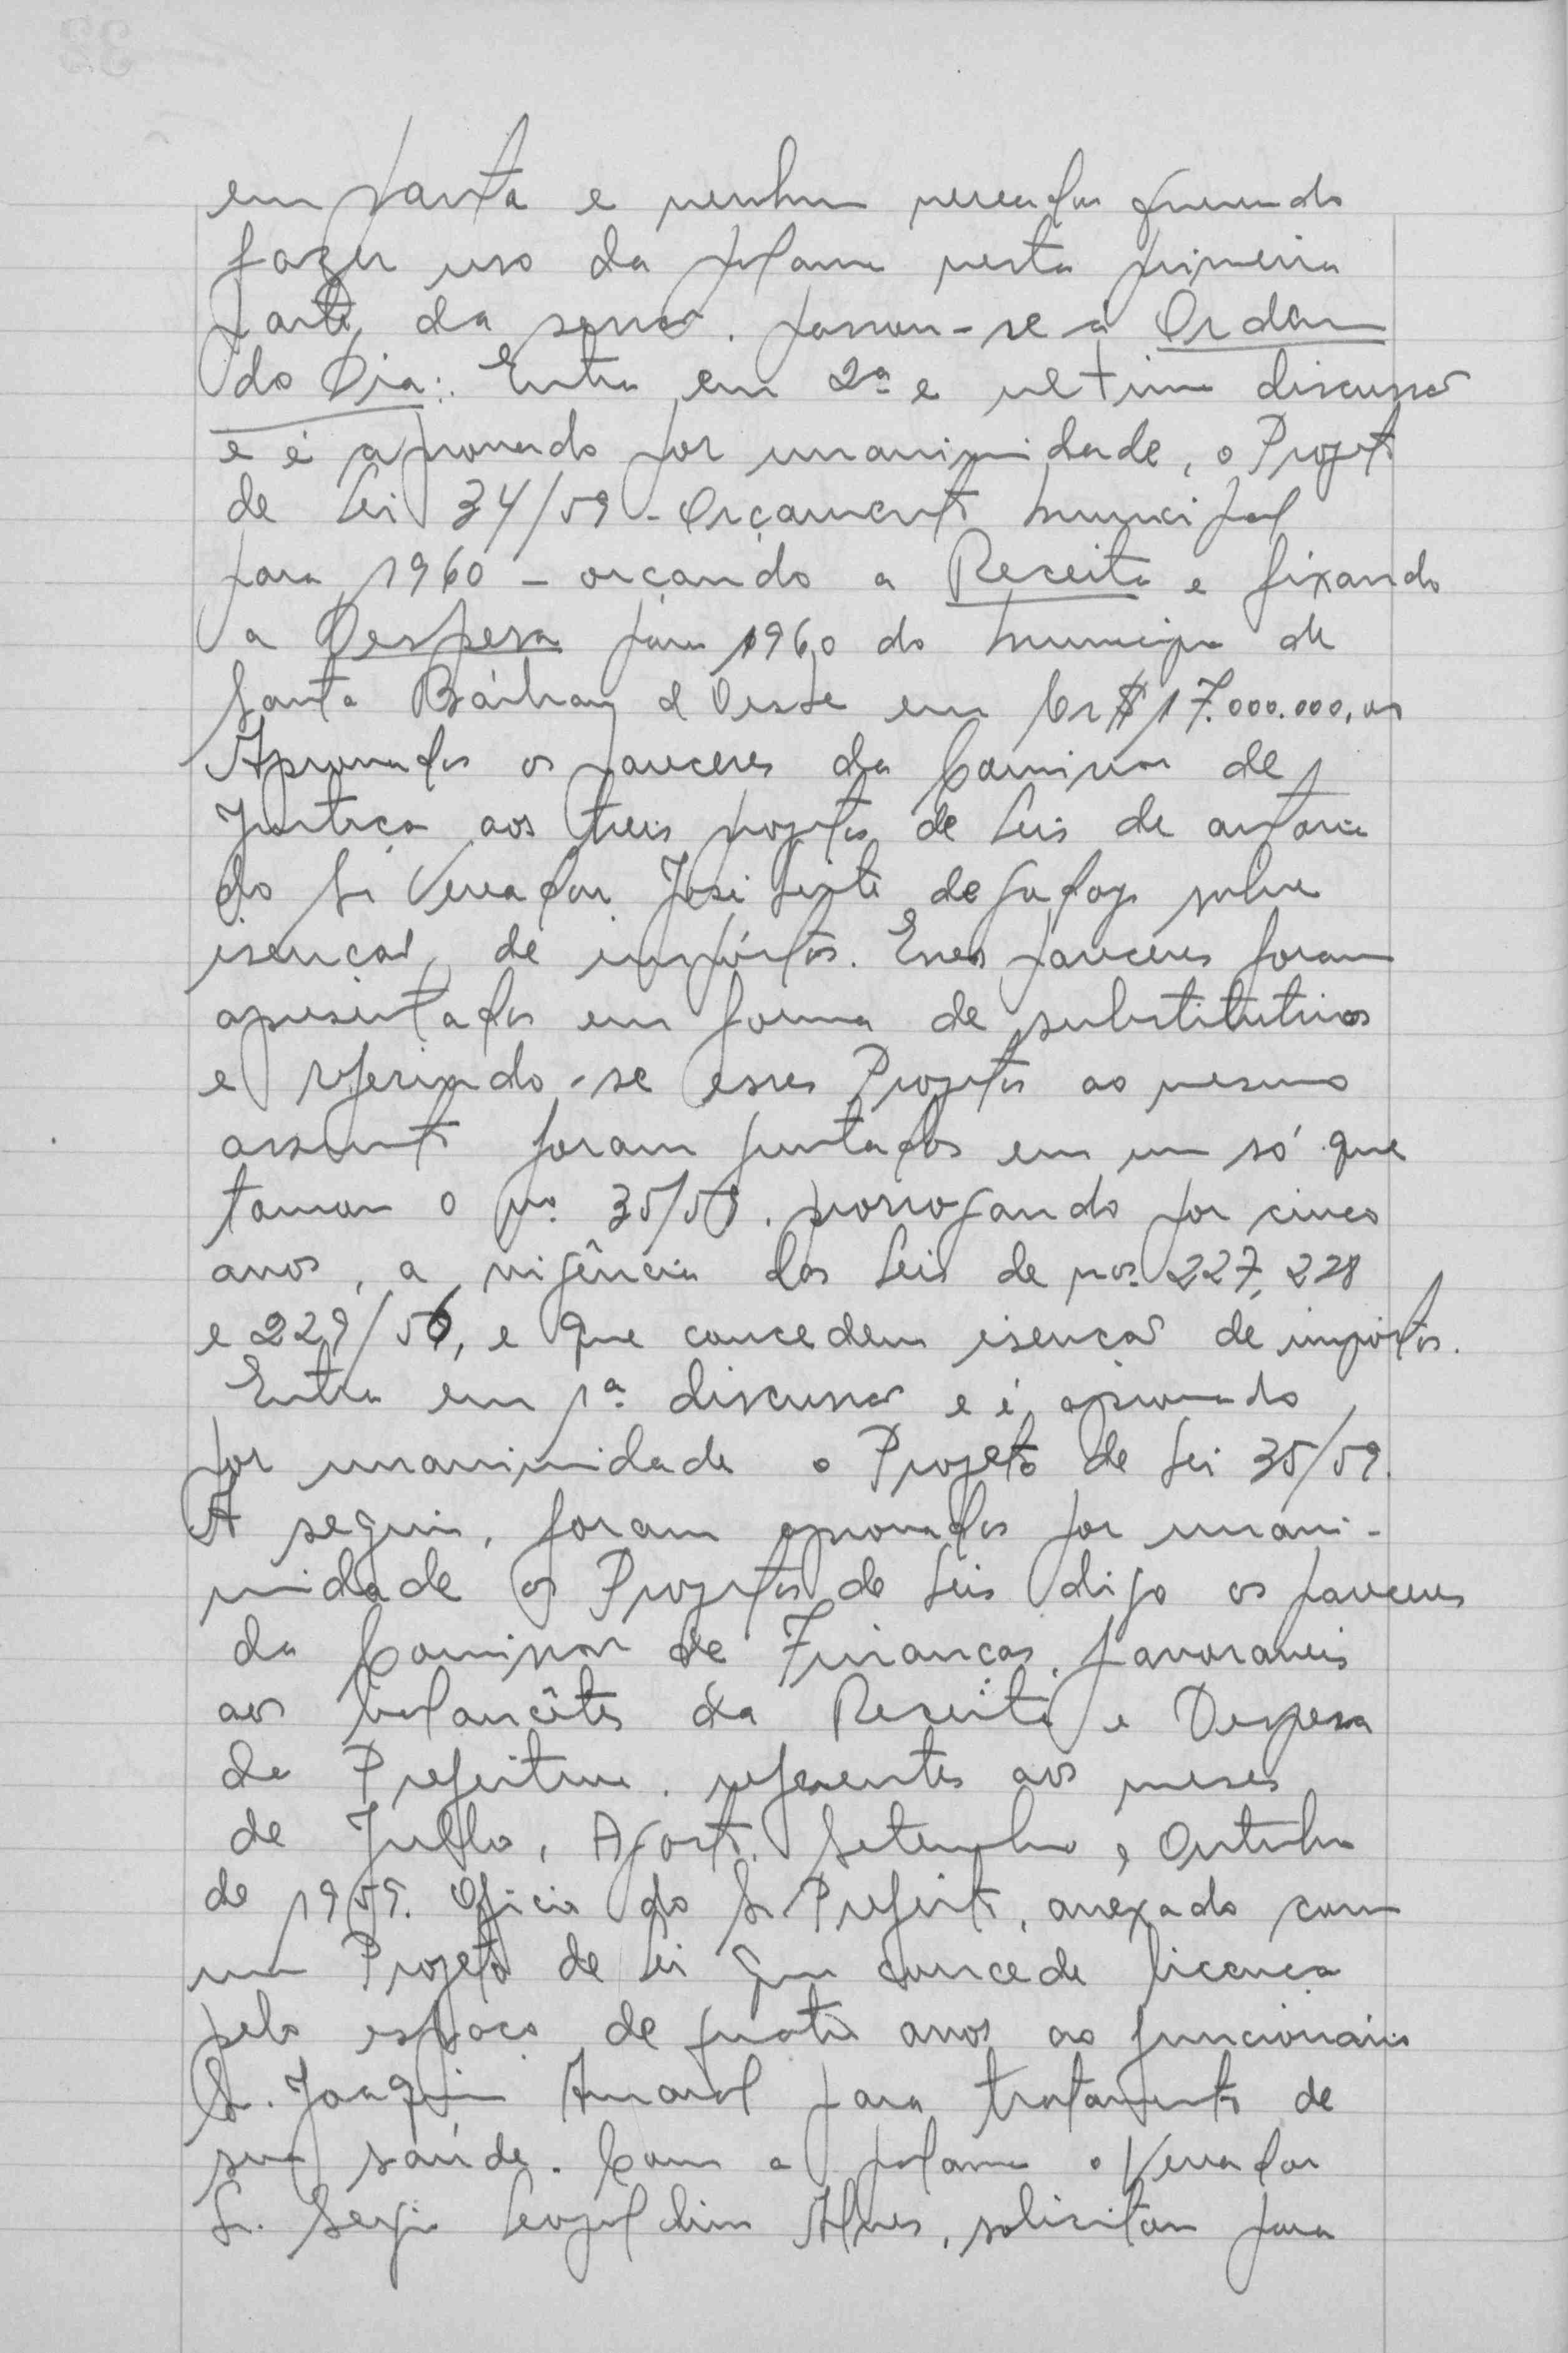 em pauta e nenhum vereador querendo
fazer uso da palavra nesta primeira
parte da sessão. passou-se à Ordem
do Dia: Entra em 2ª e ultima discussão
e é aprovado por unanimidade, o Projeto
de Lei 34/59 - Orçamento municipal
para 1960 - orçando a Receita e fixando
a Despesa para 1960 do municipio de
Santa Bárbara d'Oeste em Cr$ 17.000.000,00
Aprovados os pareceres da Comissão de
Justiça aos treis projetos de Leis de autoria
do Sr Vereador José Leite de Godoy sobre
isenção de impóstos. Esses pareceres foram
apresentados em forma de substitutivos
e referindo-se esses Projetos ao mesmo
assunto foram juntados em um só que
tomou o nº 35/59. prorrogando por cinco
anos, a vigência das Leis de nos. 227, 228
e 229/56, e que concedem isenção de impóstos.
Entra em 1ª discussão e é aprovado
por unanimidade o Projeto de Lei 35/59.
A seguir, foram aprovados por unani-
midade os Projetos de Leis digo os pareceres
da Comissão de Finanças, favoraveis
aos balancêtes da Receita e Despesa
da Prefeitura. referentes aos meses
de Julho, Agosto. Setembro e Outubro
de 1959. Oficio do Sr Prefeito, anexado com
um Projeto de Lei que concede licença
pelo espaço de quatro anos ao funcionário
Sr. Joaquim Amaral para tratamento de
sua saúde. Com a palavra o Vereador
Sr. Sergio Leopoldino Alves, solicitou para